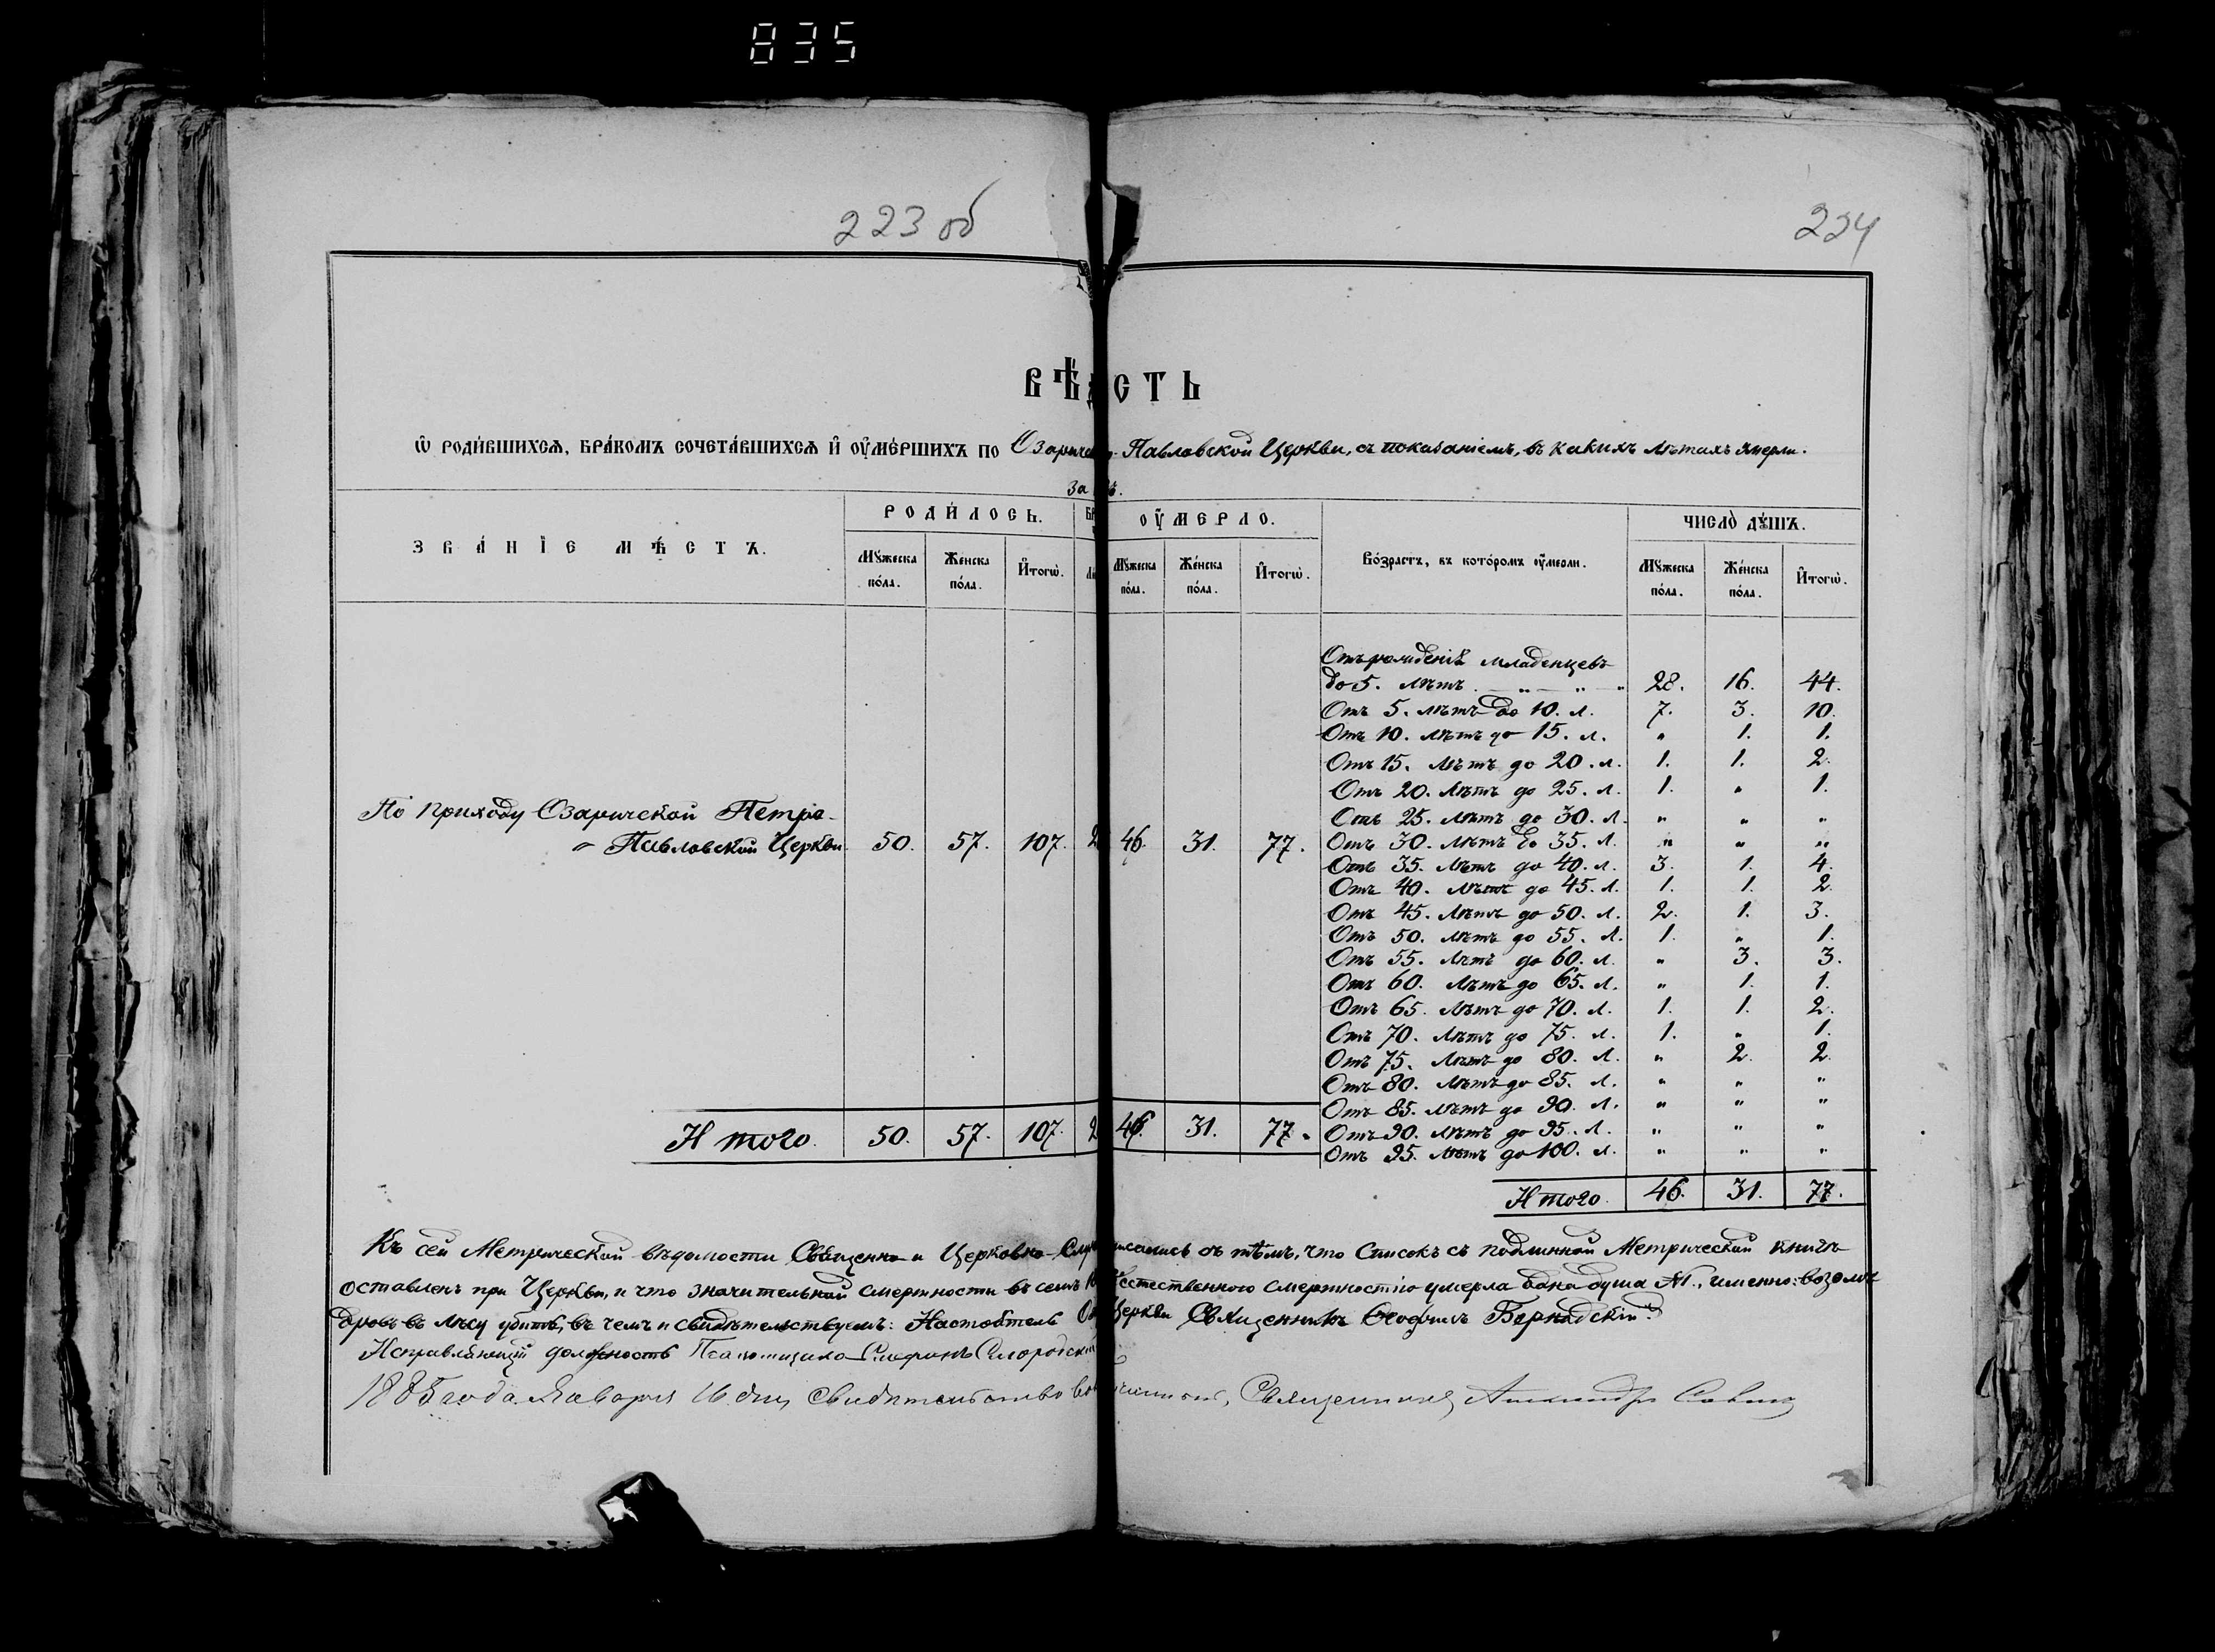 835
223 об
224
ВѢД СТЬ
Ѡ РОДИ́ВШИХСѦ, БРА́КОМЪ СОЧЕТА́ВШИХСѦ И҆ ОУ҆МЕ́РШИХЪ ПО Озарич Павловской Церкви, съ показаніемъ, въ какихъ лѣтахъ умерли.
За ъ.
ЗВА́НІЕ МѢ́СТЪ. РОДИ́ЛОСЬ. БР ОУ҆́МЕРЛО. Во́зрастъ, въ кото́ромъ оу҆́мерли. ЧИСЛО̀ ДꙊ́ШЪ.
Мꙋ́жеска по́ла. Же́нска по́ла. И҆тогѡ̀. Мꙋ́жеска по́ла. Же́нска по́ла. И҆тогѡ̀. Мꙋ́жеска по́ла. Же́нска по́ла. И҆тогѡ̀.
Отъ рожденія младенцевъ
до 5. лѣтъ . — „ — „ — „ 28. 16. 44.
Отъ 5. лѣтъ до 10. л. 7. 3. 10.
Отъ 10. лѣтъ до 15. л. „ 1. 1.
Отъ 15. лѣтъ до 20. л. 1. 1. 2.
Отъ 20. лѣтъ до 25. л. 1. „ 1.
Отъ 25. лѣтъ до 30. л. „ „ „
По приходу Озаричской Петро-
- Павловской Церкви 50. 57. 107. 2 46. 31. 77.
Отъ 30. лѣтъ до 35. л. „ „ „
Отъ 35. лѣтъ до 40. л. 3. 1. 4.
Отъ 40. лѣтъ до 45. л. 1. 1. 2.
Отъ 45. лѣтъ до 50. л. 2. 1. 3.
Отъ 50. лѣтъ до 55. л. 1. „ 1.
Отъ 55. лѣтъ до 60. л. „ 3. 3.
Отъ 60. лѣтъ до 65. л. „ 1. 1.
Отъ 65. лѣтъ до 70. л. 1. 1. 2.
Отъ 70. лѣтъ до 75. л. 1. „ 1.
Отъ 75. лѣтъ до 80. л. „ 2. 2.
Отъ 80. лѣтъ до 85. л. „ „ „
Отъ 85. лѣтъ до 90. л. „ „ „
Отъ 90. лѣтъ до 95. л. „ „ „
Отъ 95. лѣтъ до 100. л. „ „ „
Итого. 50. 57. 107. 2 46. 31. 77.
Итого. 46. 31. 77.
Къ сей Метрической вѣдомости Священно и Церковно-Слу писались съ тѣмъ, что Списокъ съ подлинной Метрической книги
оставленъ при Церкви, и что значительной смертности въ семъ естественного смертностію умерла одна душа М., именно: возомъ
дровъ въ лѣсу убитъ, въ чемъ и свидѣтельствуемъ: Настоятель Церкви Священникъ Ѳеофилъ Бернадскій.
Исправляющій должность Псаломщика
1885 года Января 16 дня свидѣтельство Священникъ Александръ Савич